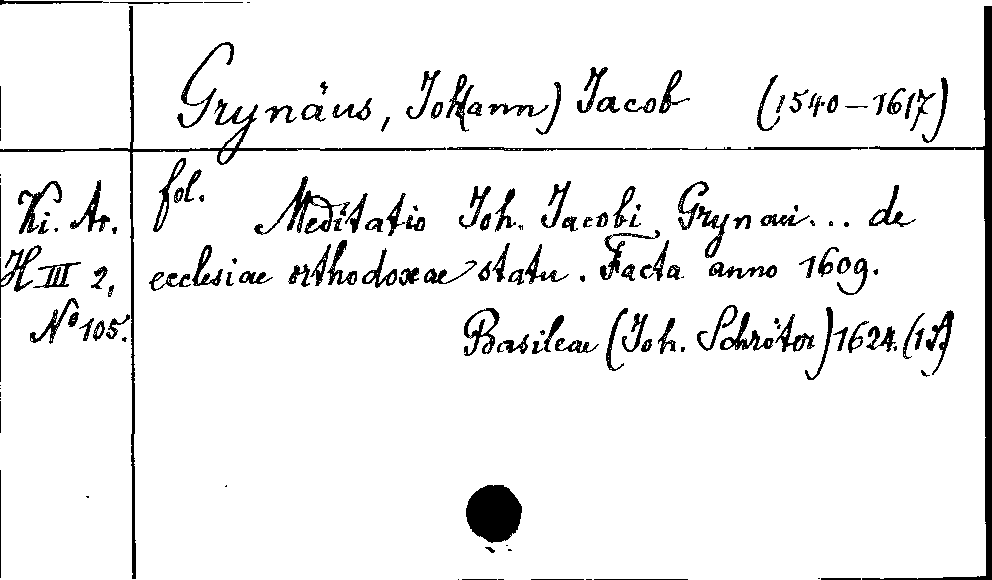 Grynäus, Joh(ann) Jacob (1540-1617)
fol.
Ki. Ar.
H III 2,
No 105.
Meditatio Joh. Jacobi Grynaei... de
ecclesiae orthodoxae statu. Facta anno 1609.
Basileae (Joh. Schröter) 1624.